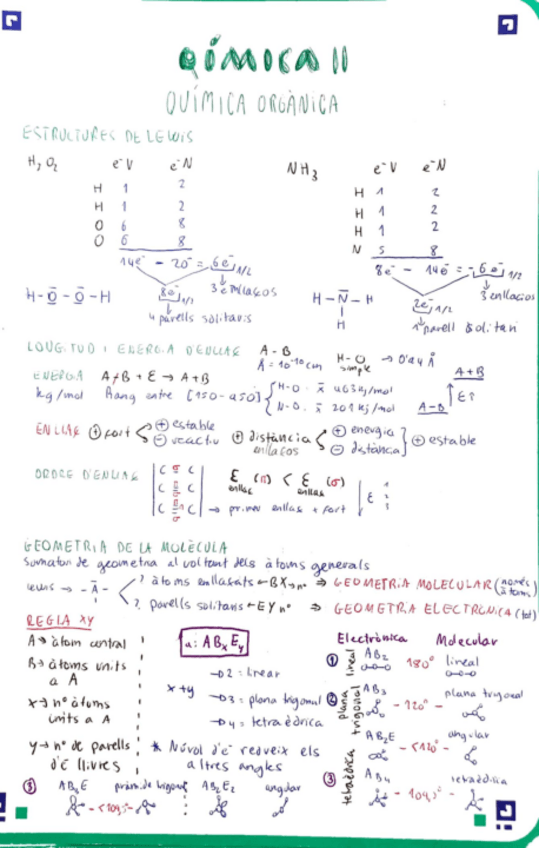 QUÍMICA II
QUÍMICA ORGÀNICA
ESTRUCTURES DE LEWIS
H₂O₂ e⁻V e⁻N
H 1 2
H 1 2
O 6 8
O 6 8
14e⁻ - 20⁻ = 6e⁻ 1/2
8e⁻ 1/2 3 enllaços
4 parells solitaris
H-O-O-H
NH₃ e⁻V e⁻N
H 1 2
H 1 2
H 1 2
N 5 8
8e⁻ - 14e⁻ = -6e⁻ 1/2
2e⁻ 1/2 3 enllaços
1 parell solitari
H-N-H
H
LONGITUD I ENERGIA D'ENLLAÇ A-B
Å = 10⁻¹⁰cm H-O simple → 0'94 Å
ENERGIA A-B + E → A+B
kg/mol Rang entre [150-950] H-O. x̄ 463 kj/mol
N-O. x̄ 201 kj/mol
A+B
A-B E?
ENLLAÇ ⊕ fort ⊕ estable
⊖ reactiu
⊕ distància enllaços ⊕ energia
⊖ distància ⊕ estable
ORDRE D'ENLLAÇ C σ C
C C
C C
E enllaç (π) < E enllaç (σ)
→ primer enllaç + fort
E
GEOMETRIA DE LA MOLÈCULA
Sumatori de geometria al voltant dels àtoms generals
Lewis → -A- ? àtoms enllaçats ← BX → nº ⇒ GEOMETRIA MOLECULAR (només àtoms)
? parells solitaris ← EY nº ⇒ GEOMETRIA ELECTRÒNICA (tot)
REGLA XY
A → àtom central
B → àtoms units a A
x → nº àtoms units a A
y → nº de parells d'e⁻ lliures
a: ABₓEᵧ
x+y
→ 2 = linear
→ 3 = plana trigonal
→ 4 = tetraèdrica
* Núvol d'e⁻ redueix els altres angles
Electrònica Molecular
① lineal AB₂ 180° lineal
② plana trigonal AB₃ - 120° - plana trigonal
AB₂E - <120° - angular
③ tetraèdrica AB₄ - 109,5° - tetraèdrica
③ AB₃E piràmide trigonal AB₂E₂ angular
- <109,5 -